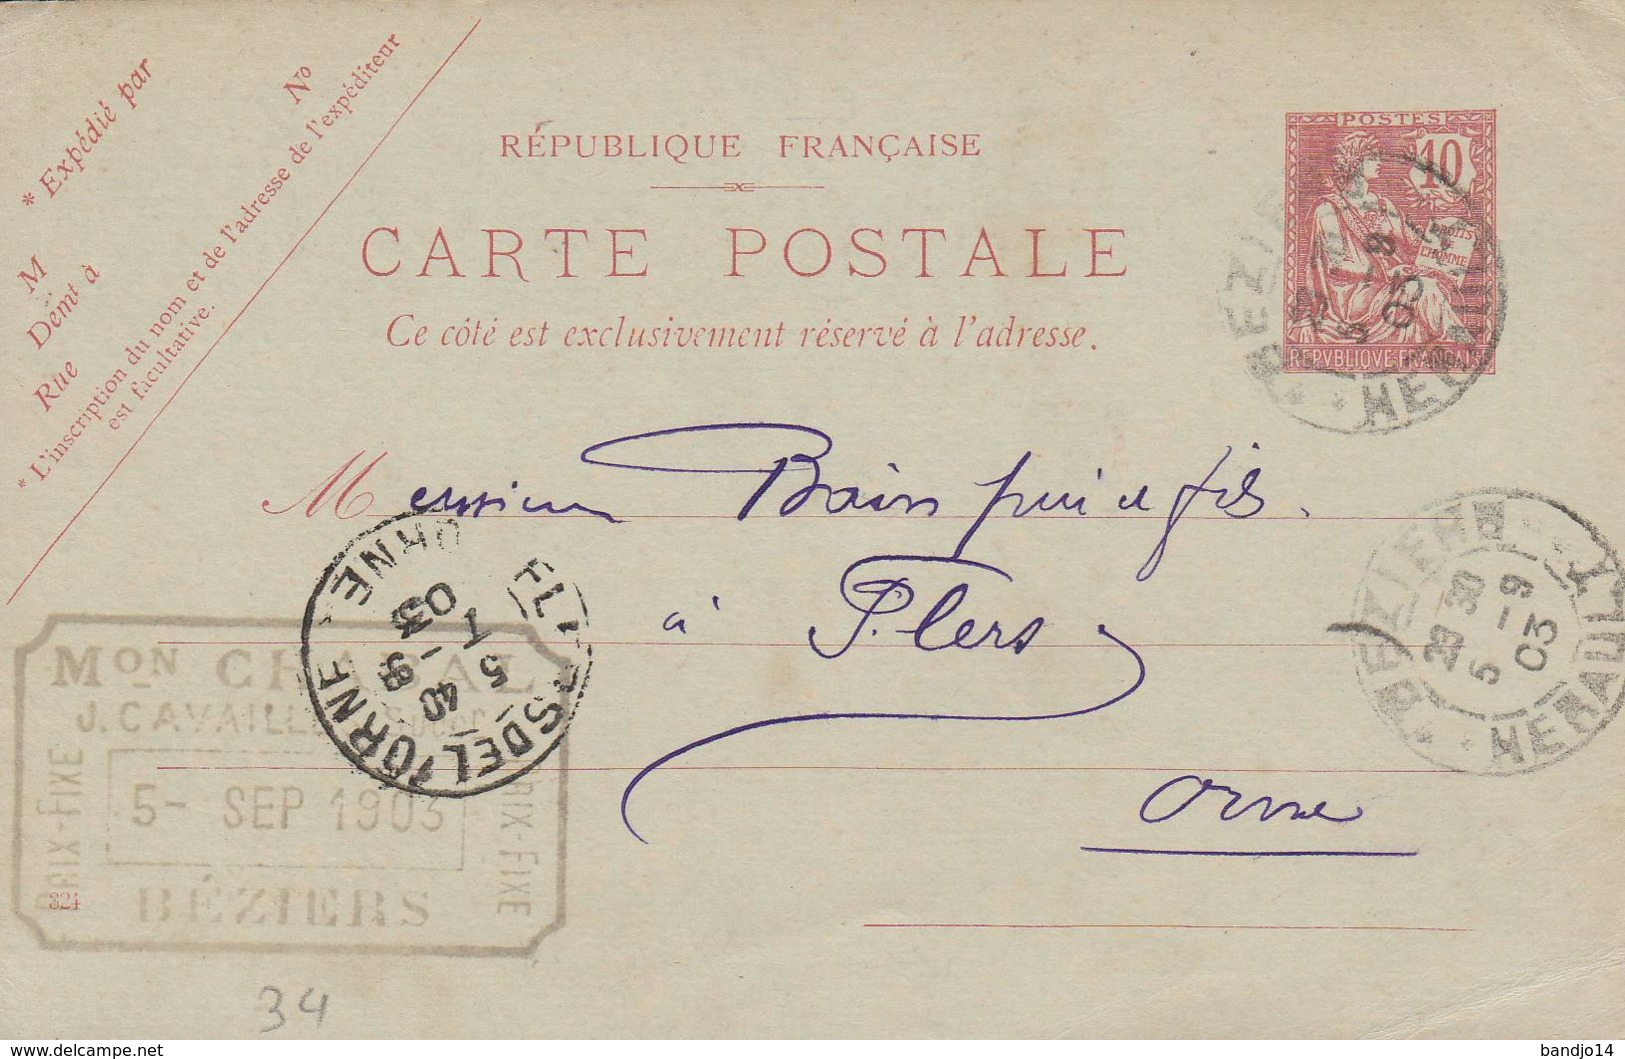 * Expédié par
N°
M
Demt à
Rue
* L'inscription du nom et de l'adresse de l'expéditeur
est facultative.
RÉPUBLIQUE FRANÇAISE
CARTE POSTALE
Ce côté est exclusivement réservé à l'adresse.
POSTES
10
DROITS
DE
L'HOMME
REPVBLIQVE FRANÇAISE
BEZIERS
5 -9
03
HERAULT
Messieurs Bain père et fils.
à Flers
Orne
BEZIERS
23 30
5 -9
03
HERAULT
FLERS DE L'ORNE
ORNE
8 40
5 -9
03
MON CHAPAL
J. CAVAILLÉ Sucr
PRIX-FIXE
5- SEP 1903
PRIX-FIXE
BÉZIERS
824
34
www.delcampe.net
bandjo14